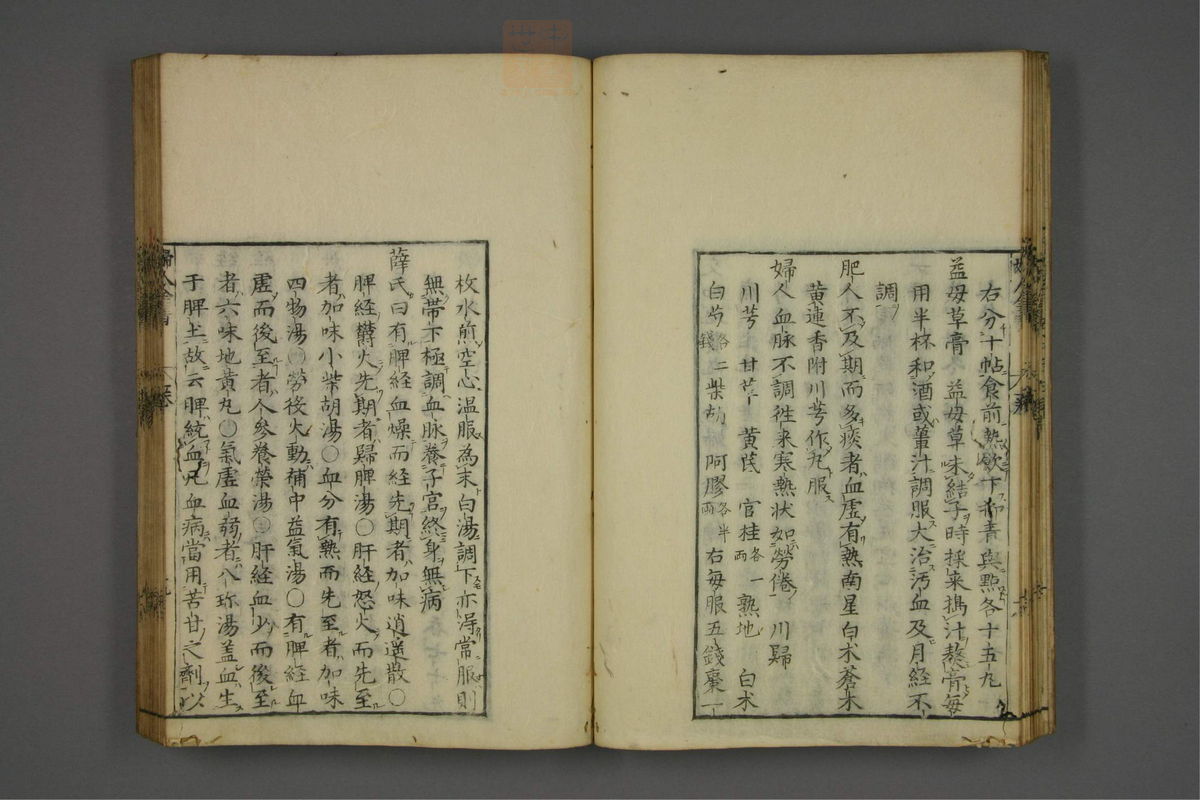 右分十帖食前熱飲下抑青與點各十五丸
益母草膏　益母草未結子時採来搗汁熬膏毎
用半杯和酒或薑汁調服大治汚血及月経不
調
肥人不及期而多痰者血虚有熱南星白朮蒼朮
黄連香附川芎作丸服
婦人血脉不調徃来寒熱状如勞倦　川歸
川芎　甘艹　黄芪　官桂各一両　熟地　白朮
白芍各二錢　柴胡　阿膠各半両　右毎服五錢棗一
枚水煎空心温服為末白湯調下亦得常服則
無帯下極調血脉養子宮終身無病
薛氏曰有脾経血燥而経先期者加味逍遥散〇
脾経欝火先期者歸脾湯〇肝経怒火而先至
者加味小柴胡湯〇血分有熱而先至者加味
四物湯〇勞役火動補中益氣湯〇有脾経血
虚而後至者人参養榮湯〇肝経血少而後至
者六味地黄丸〇氣虚血弱者八珎湯盖血生
于脾土故云脾統血凡血病當用苦甘之劑以